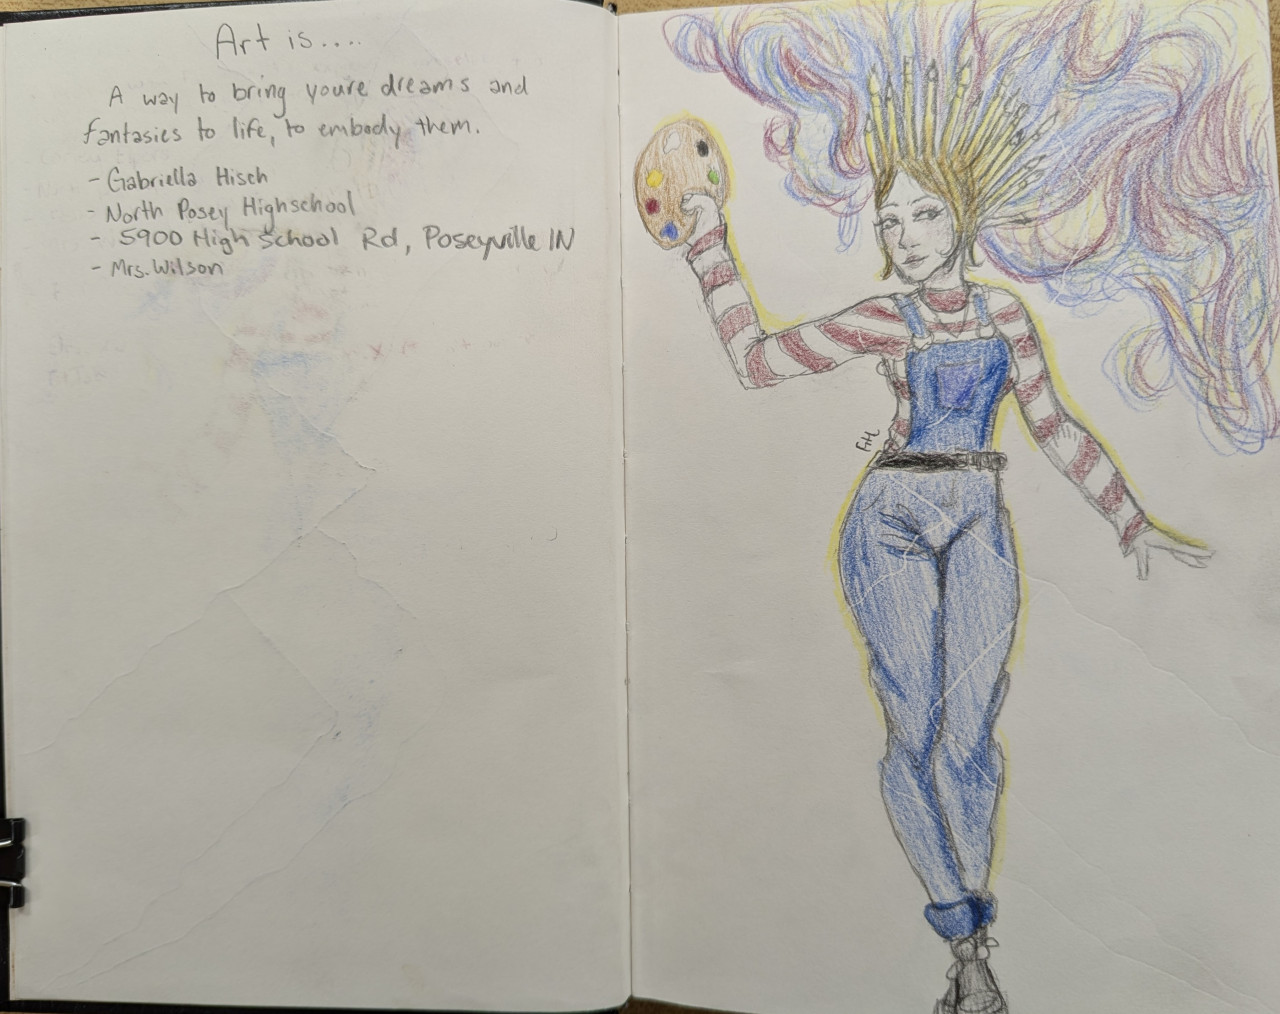 Art is....
A way to bring youre dreams and
fantasies to life, to embody them.
- Gabriella Hisch
- North Posey Highschool
- 5900 High School Rd, Poseyville IN
- Mrs. Wilson
GH